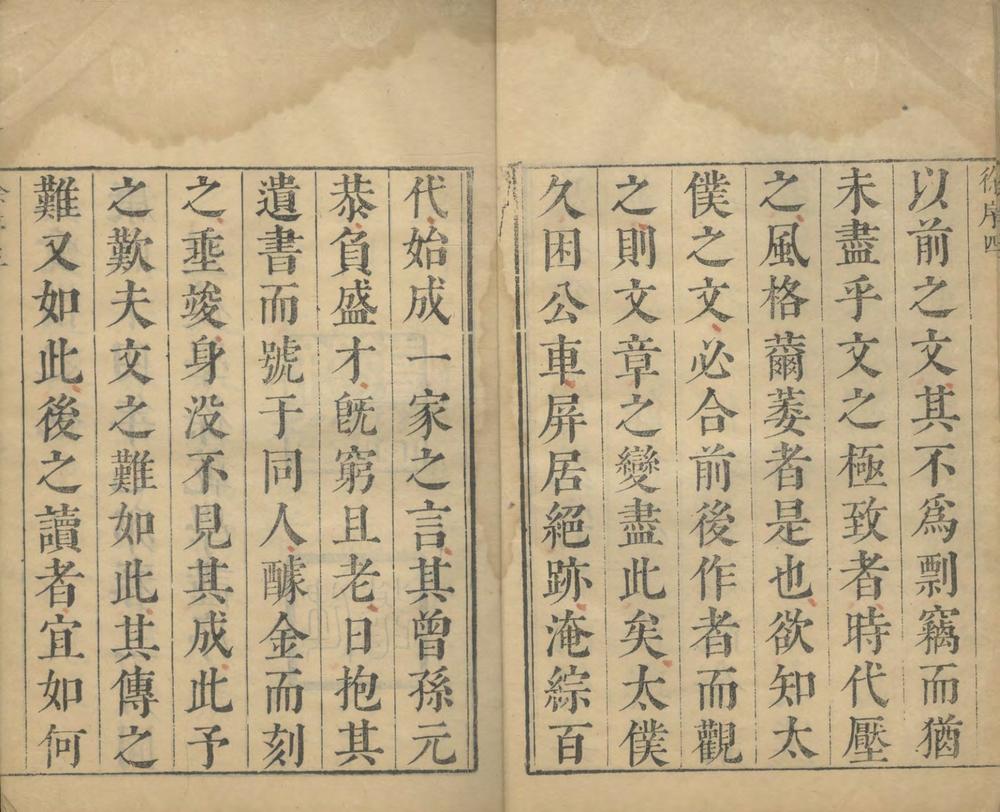 徐序四
以前之文其不爲剽竊而猶
未盡乎文之極致者時代壓
之風格薾萎者是也欲知太
僕之文必合前後作者而觀
之則文章之變盡此矣太僕
久困公車屏居絕跡淹綜百
代始成一家之言其曾孫元
恭負盛才旣窮且老日抱其
遺書而號于同人醵金而刻
之垂竣身没不見其成此予
之歎夫文之難如此其傳之
難又如此後之讀者宜如何